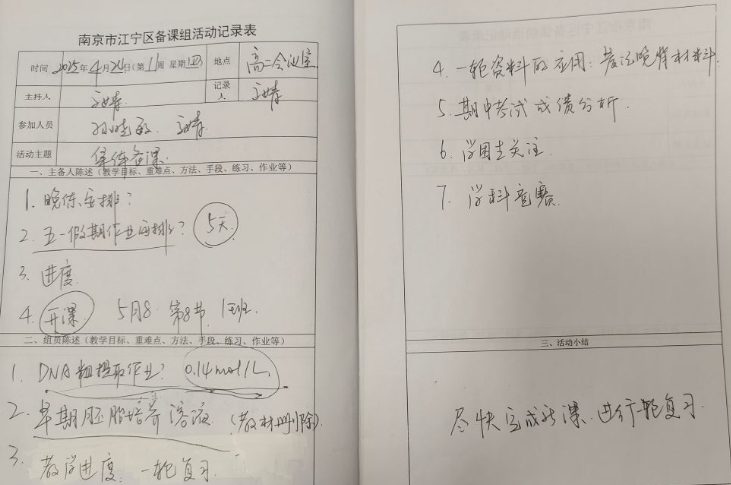 南京市江宁区备课组活动记录表
时间 2025年4月24日(第11周 星期四) 地点 高二会议室
主持人 记录人
参加人员
活动主题 集体备课
一、主备人陈述(教学目标、重难点、方法、手段、练习、作业等)
1. 晚练安排?
2. 五一假期作业安排? 5天
3. 进度
4. 开课 5月8 第8节 1班
二、组员陈述(教学目标、重难点、方法、手段、练习、作业等)
1. DNA粗提取作业? 0.14mol/L
2. 早期胚胎培养溶液 (教材删除)
3. 教学进度 一轮复习
4. 一轮资料的应用:
5. 期中考试成绩分析
6. 学困生关注
7. 学科竞赛
三、活动小结
尽快完成新课 进行一轮复习